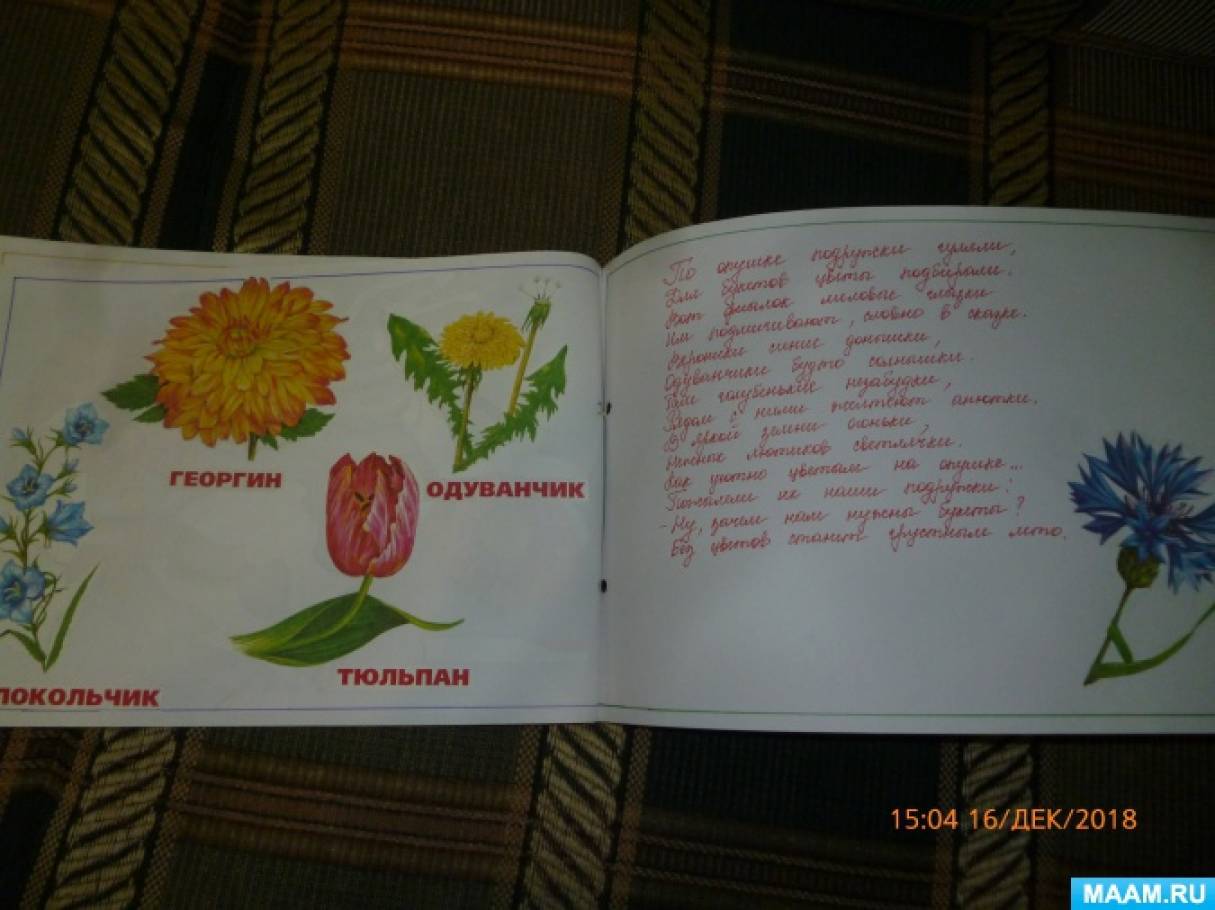 ГЕОРГИН
ОДУВАНЧИК
ТЮЛЬПАН
ЛОКОЛЬЧИК
По опушке подружки гуляли,
Для букетов цветы подбирали.
Вот фиалок лиловые глазки
Им подмигивают, словно в сказке.
Вероники синие донышки,
Одуванчики будто солнышки.
голубенькие незабудки,
Рядом с ними желтеют анютки.
В яркой зелени огоньки,
Нежных лютиков светлячки.
Как уютно цветам на опушке...
Пожалели их наши подружки:
- Ну, зачем нам нужны букеты?
Без цветов станет грустным лето.
15:04 16/ДЕК/2018
MAAM.RU